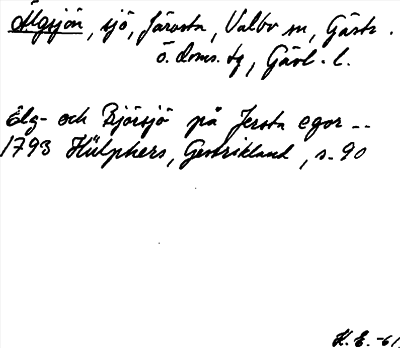 Älgsjön, sjö, Järvsta, Valbo sn, Gästr.
Ö. doms. tg, Gävl. l.
Elg- och Björsjö på Jersta egor --
1793 Hülphers, Gestrikland, s. 90
H. E. -61